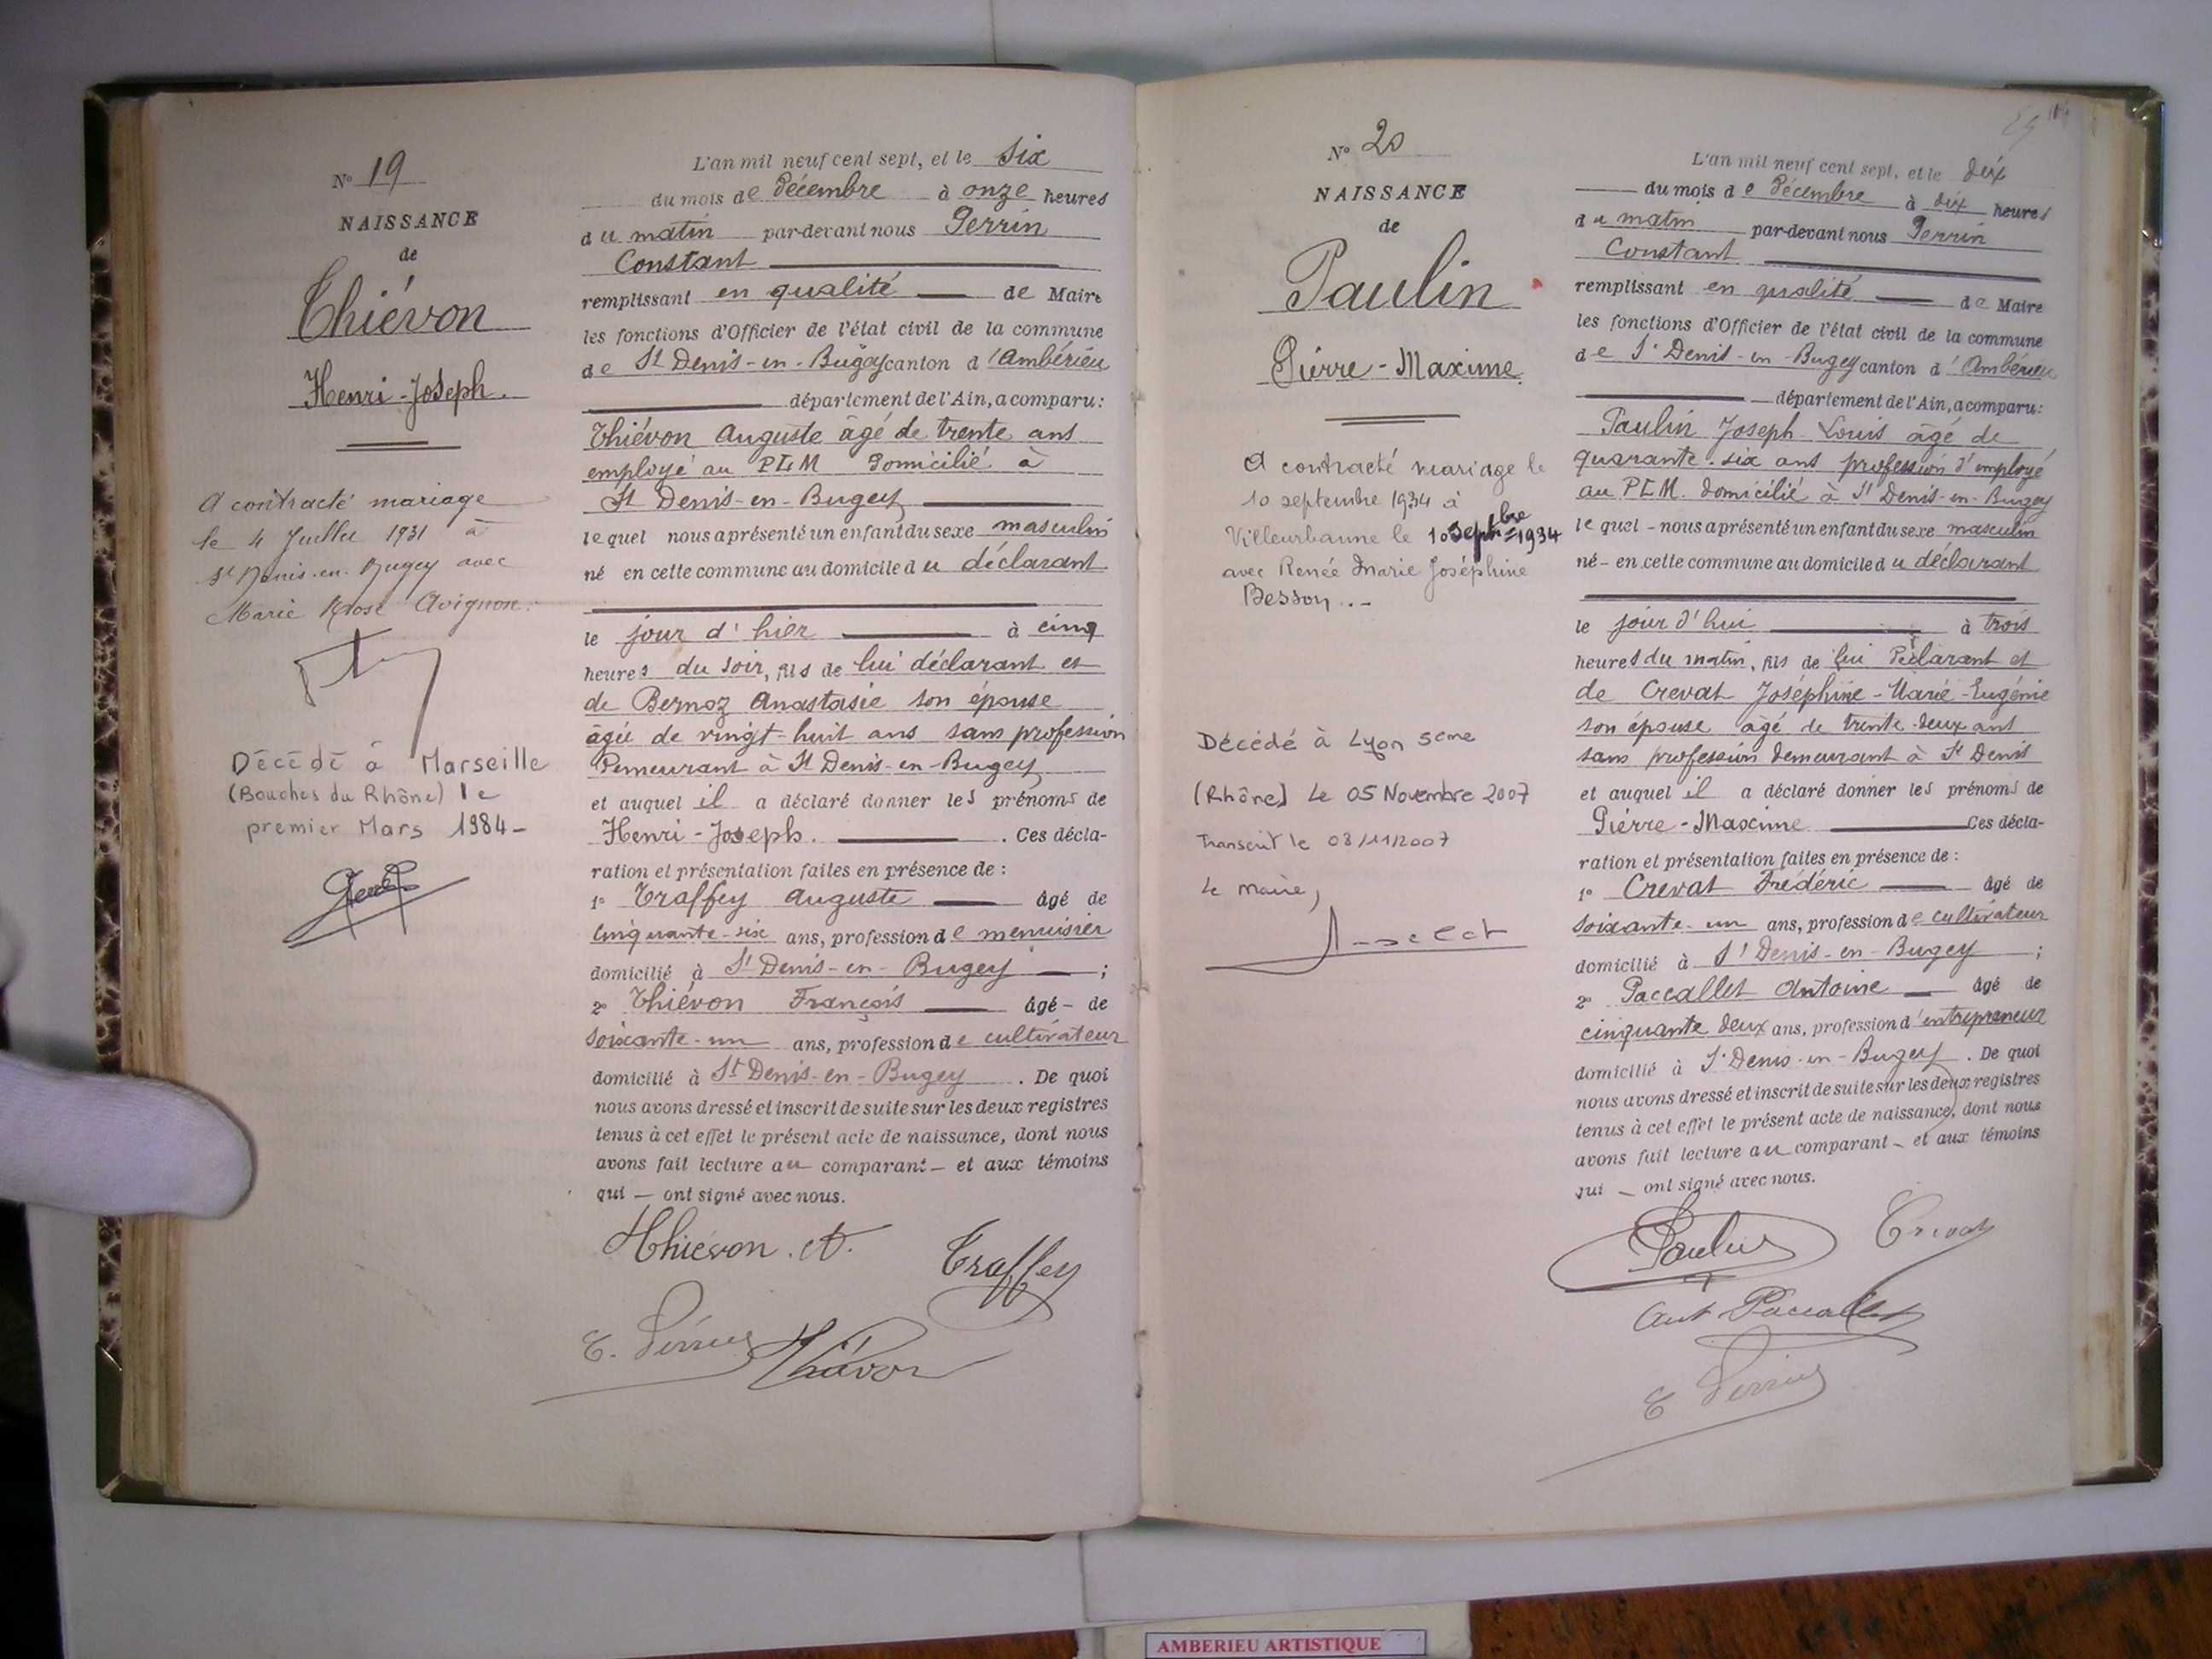 N° 19
NAISSANCE
de
Thiévon
Henri-Joseph.
A contracté mariage
le 4 Juillet 1931 à
St Denis-en-Bugey avec
Marie Rose Avignon.
Décédé à Marseille
(Bouches du Rhône) le
premier Mars 1984-
L'an mil neuf cent sept, et le six
du mois de Décembre à onze heures
du matin par-devant nous Perrin
Constant
remplissant en qualité de Maire
les fonctions d'Officier de l'état civil de la commune
de St Denis-en-Bugey canton d'Ambérieu
département de l'Ain, a comparu:
Thiévon Auguste âgé de trente ans
employé au PLM domicilié à
St Denis-en-Bugey
lequel nous a présenté un enfant du sexe masculin
né en cette commune au domicile du déclarant
le jour d'hier à cinq
heures du soir, fils de lui déclarant et
de Bernoz Anastasie son épouse
âgée de vingt-huit ans sans profession
Demeurant à St Denis-en-Bugey
et auquel il a déclaré donner les prénoms de
Henri-Joseph. . Ces décla-
ration et présentation faites en présence de :
1° Traffey Auguste âgé de
cinquante-six ans, profession de menuisier
domicilié à St Denis-en-Bugey ;
2° Thiévon François âgé - de
soixante-un ans, profession de cultivateur
domicilié à St Denis-en-Bugey . De quoi
nous avons dressé et inscrit de suite sur les deux registres
tenus à cet effet le présent acte de naissance, dont nous
avons fait lecture au comparant - et aux témoins
qui - ont signé avec nous.
Thiévon . A.
Traffey
C. Perrin Thiévon
N° 20
NAISSANCE
de
Paulin
Pierre-Maxime.
A contracté mariage le
10 septembre 1934 à
Villeurbanne le 10 Septbre 1934
avec Renée Marie Joséphine
Besson..-
Décédé à Lyon 5eme
(Rhône) Le 05 Novembre 2007
Transcrit le 08/11/2007
Le Maire,
L'an mil neuf cent sept, et le dix
du mois de Décembre à dix heures
du matin par-devant nous Perrin
Constant
remplissant en qualité de Maire
les fonctions d'Officier de l'état civil de la commune
de St Denis-en-Bugey canton d'Ambérieu
département de l'Ain, a comparu:
Paulin Joseph Louis âgé de
quarante-six ans profession d'employé
au PLM. domicilié à St Denis-en-Bugey
lequel - nous a présenté un enfant du sexe masculin
né - en cette commune au domicile du déclarant
le jour d'hui à trois
heures du matin, fils de lui Déclarant et
de Crevat Joséphine-Marie-Eugénie
son épouse âgé de trente-deux ans
sans profession demeurant à St Denis
et auquel il a déclaré donner les prénoms de
Pierre-Maxime Ces décla-
ration et présentation faites en présence de :
1° Crevat Frédéric âgé de
soixante-un ans, profession de cultivateur
domicilié à St Denis-en-Bugey ;
2° Paccallet Antoine âgé de
cinquante deux ans, profession d'entrepreneur
domicilié à St Denis-en-Bugey . De quoi
nous avons dressé et inscrit de suite sur les deux registres
tenus à cet effet le présent acte de naissance, dont nous
avons fait lecture au comparant - et aux témoins
qui - ont signé avec nous.
Paulin Crevat
Ant Paccallet
C Perrin
AMBERIEU ARTISTIQUE